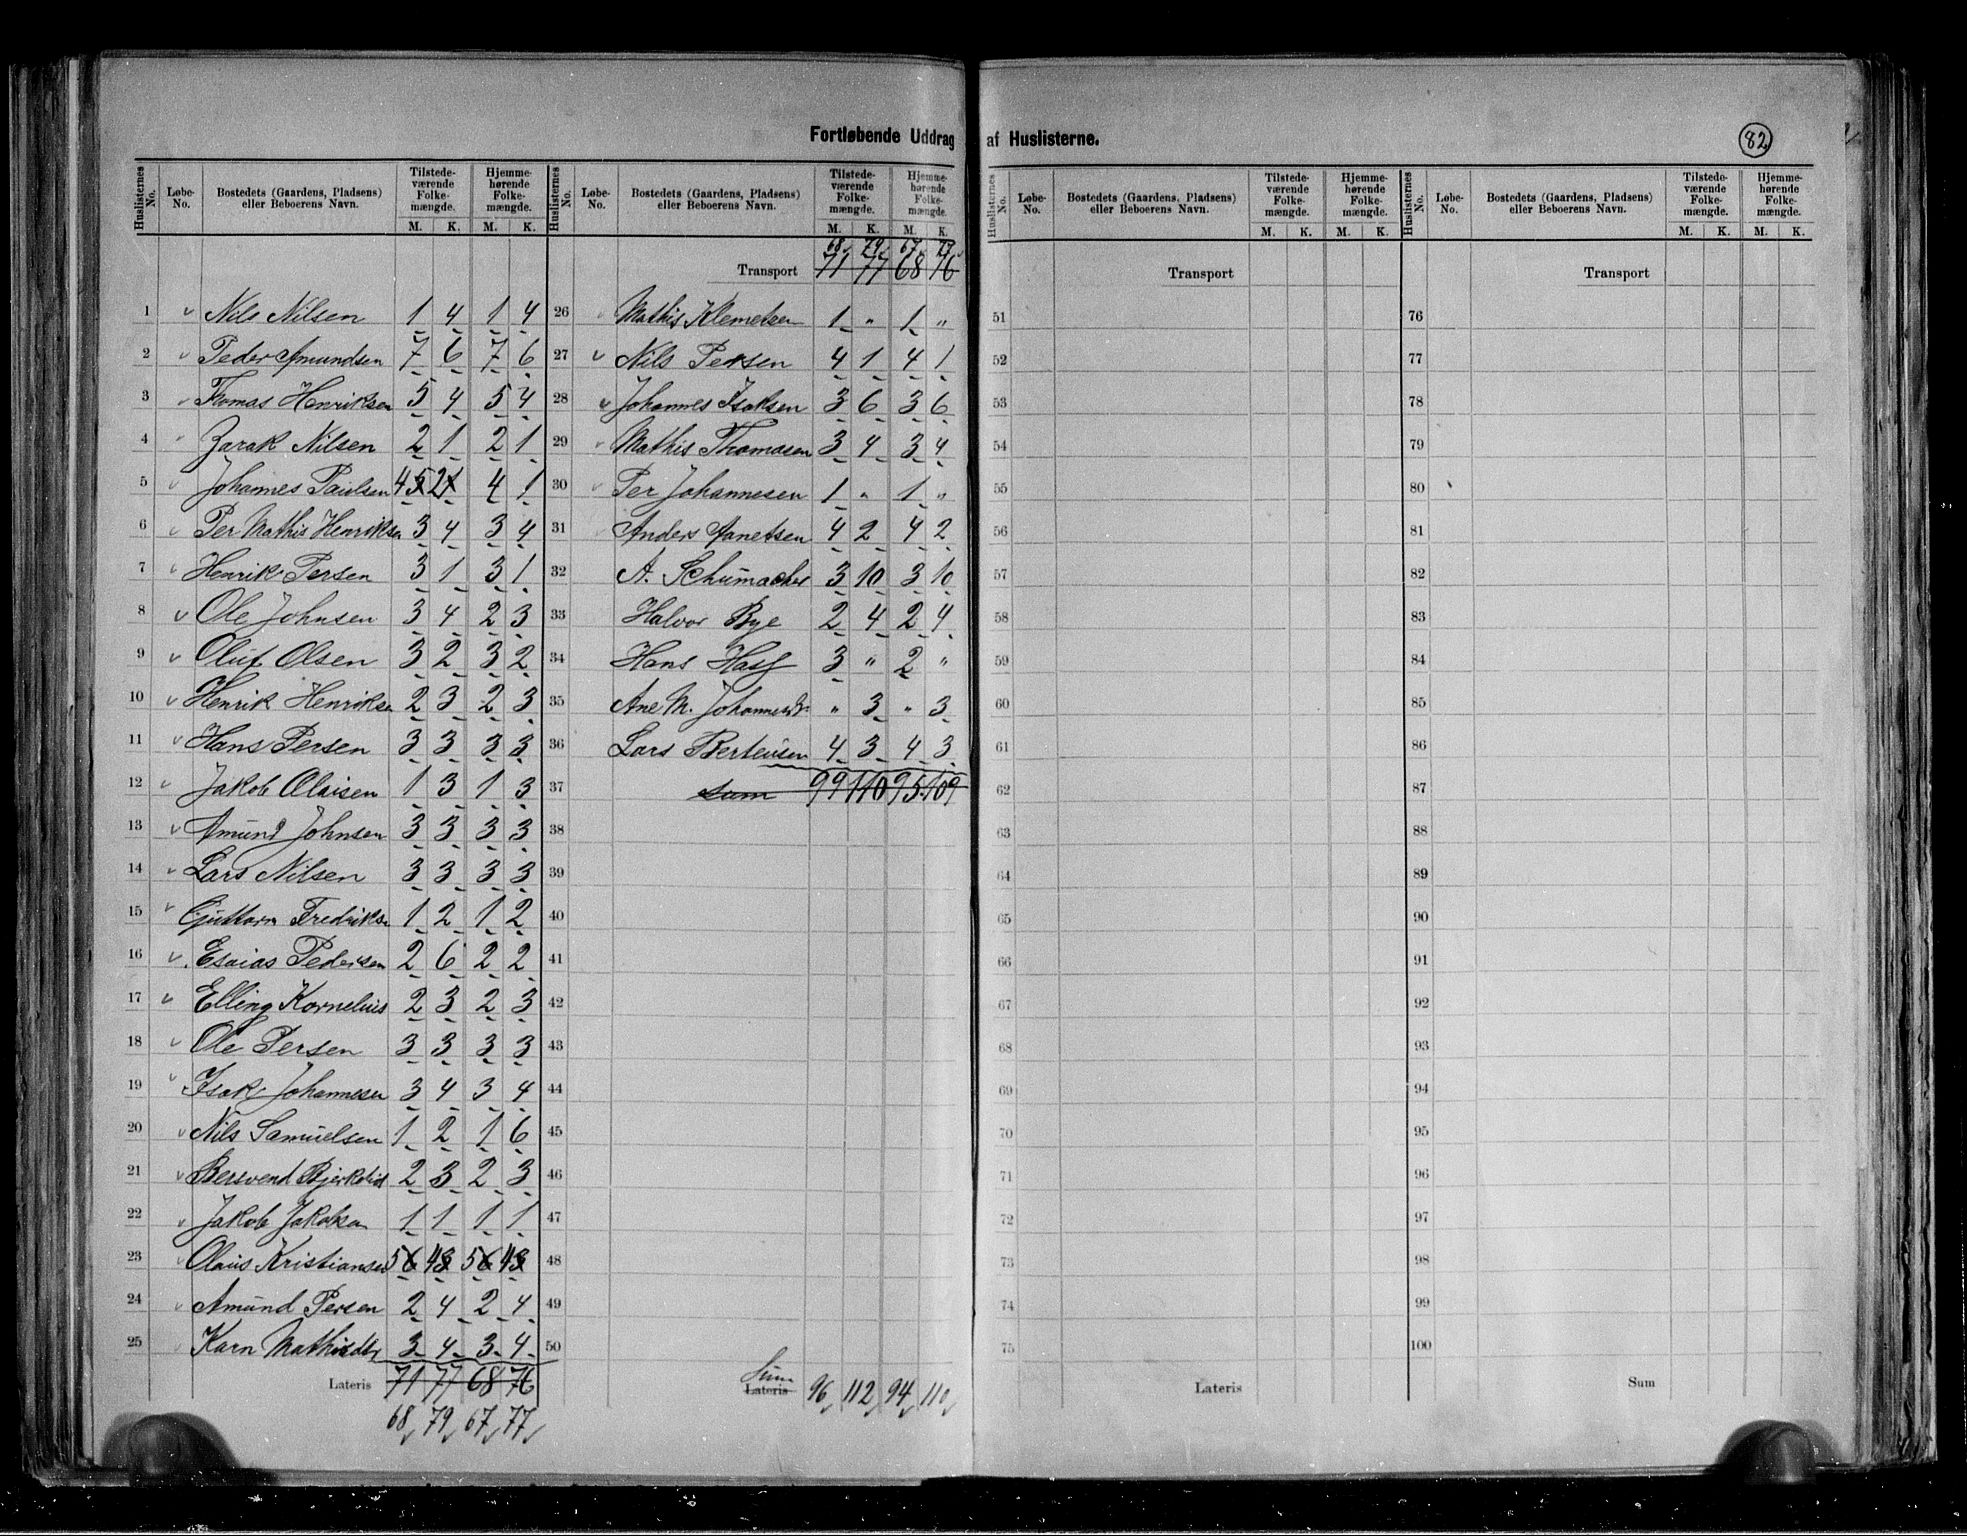 Fortløbende Uddrag af Huslisterne.
82
Huslisternes No. Løbe-No. Bostedets (Gaardens, Pladsens) eller Beboerens Navn. Tilstedeværende Folkemængde. M. K. Hjemmehørende Folkemængde. M. K.
1 Nils Nilsen 1 4 1 4
2 Peder Amundsen 7 6 7 6
3 Thomas Henriksen 5 4 5 4
4 Zarak Nilsen 2 1 2 1
5 Johannes Paulsen 4 5 2 1 4 1
6 Per Mathis Henriksen 3 4 3 4
7 Henrik Persen 3 1 3 1
8 Ole Johnsen 3 4 2 3
9 Oluf Olsen 3 2 3 2
10 Henrik Henriksen 2 3 2 3
11 Hans Persen 3 3 3 3
12 Jakob Olaisen 1 3 1 3
13 Amund Johnsen 3 3 3 3
14 Lars Nilsen 3 3 3 3
15 Guttorm Fredriksn 1 2 1 2
16 Esaias Pedersen 2 6 2 2
17 Elling Kornelius 2 3 2 3
18 Ole Persen 3 3 3 3
19 Isak Johannesen 3 4 3 4
20 Nils Samuelsen 1 2 1 6
21 Bersvend Bjerkelid 2 3 2 3
22 Jakob Jakobsen 1 1 1 1
23 Olaus Kristiansen 5 6 4 3 5 6 4 3
24 Amund Persen 2 4 2 4
25 Karn Mathisdtr 3 4 3 4
Lateris 71 77 68 76
68 79 67 77
Huslisternes No. Løbe-No. Bostedets (Gaardens, Pladsens) eller Beboerens Navn. Tilstedeværende Folkemængde. M. K. Hjemmehørende Folkemængde. M. K.
68 79 67 77
Transport 71 77 68 76
26 Mathis Klemetsen 1 " 1 "
27 Nils Persen 4 1 4 1
28 Johannes Isaksen 3 6 3 6
29 Mathis Thomasen 3 4 3 4
30 Per Johannesen 1 " 1 "
31 Anders Aanetsen 4 2 4 2
32 A. Schumacher 3 10 3 10
33 Halvor Bye 2 4 2 4
34 Hans 3 " 2 "
35 Ane M. Johannesdr " 3 " 3
36 Lars Berteusen 4 3 4 3
37 Sum 99 110 95 109
38
39
40
41
42
43
44
45
46
47
48
49
50
Sum
Lateris 96 112 94 110
Huslisternes No. Løbe-No. Bostedets (Gaardens, Pladsens) eller Beboerens Navn. Tilstedeværende Folkemængde. M. K. Hjemmehørende Folkemængde. M. K.
Transport
51
52
53
54
55
56
57
58
59
60
61
62
63
64
65
66
67
68
69
70
71
72
73
74
75
Lateris
Huslisternes No. Løbe-No. Bostedets (Gaardens, Pladsens) eller Beboerens Navn. Tilstedeværende Folkemængde. M. K. Hjemmehørende Folkemængde. M. K.
Transport
76
77
78
79
80
81
82
83
84
85
86
87
88
89
90
91
92
93
94
95
96
97
98
99
100
Sum